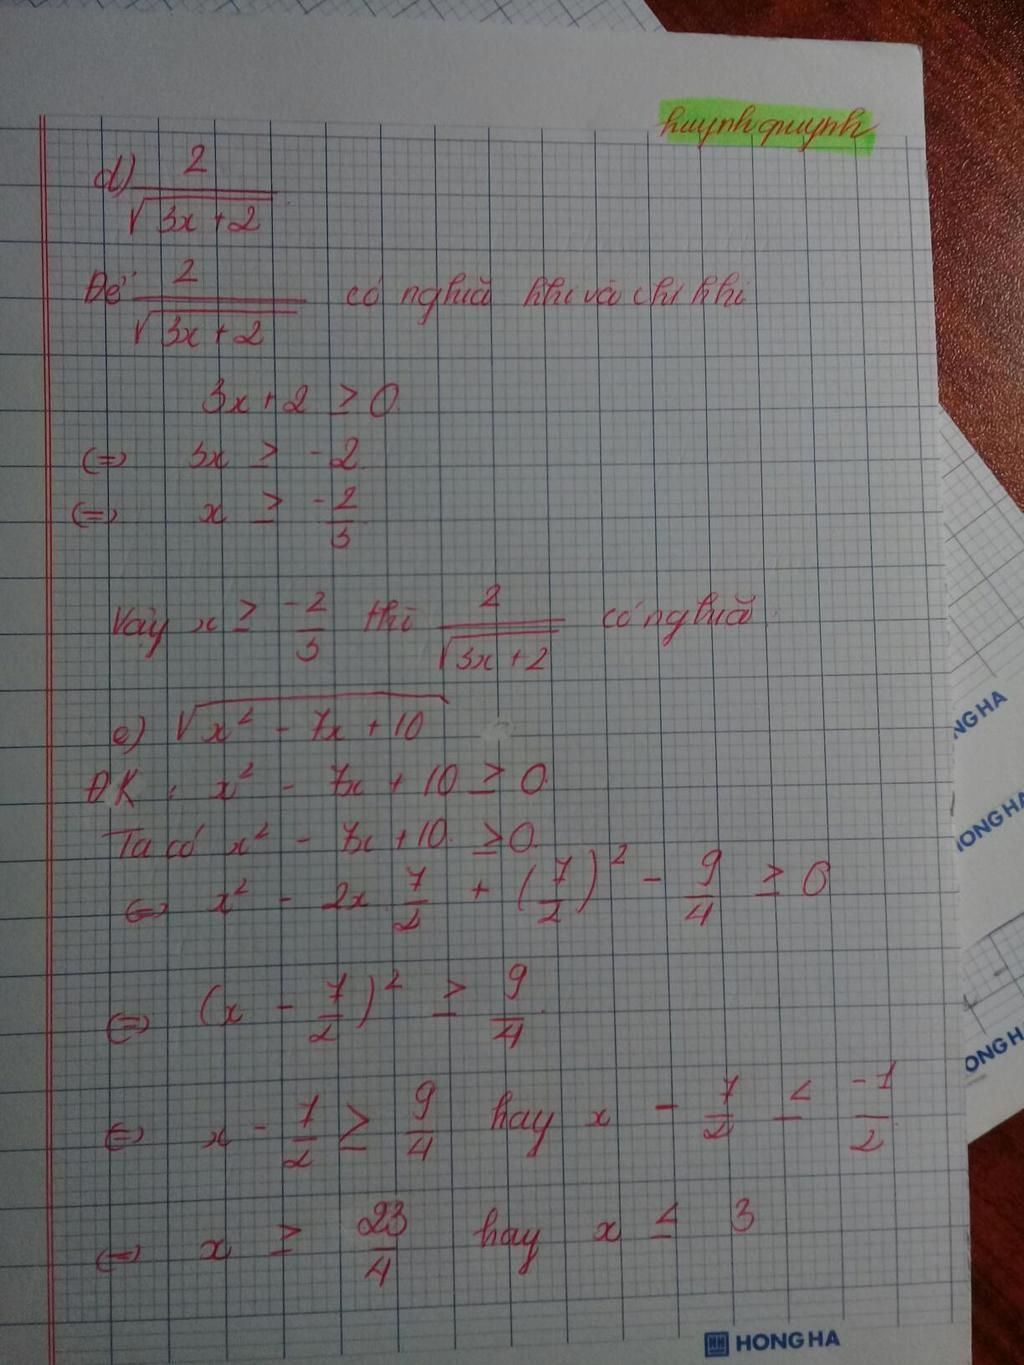 huynhquynh
d) 2/√(3x+2)
Để 2/√(3x+2) có nghĩa khi và chỉ khi
3x+2 ≥ 0
(=) 3x ≥ -2
(=) x ≥ -2/3
Vậy x ≥ -2/3 thì 2/√(3x+2) có nghĩa
e) √(x² - 7x + 10)
ĐK: x² - 7x + 10 ≥ 0
Ta có x² - 7x + 10 ≥ 0
(=) x² - 2x 7/2 + (7/2)² - 9/4 ≥ 0
(=) (x - 7/2)² ≥ 9/4
(=) x - 7/2 ≥ 9/4 hay x - 7/2 ≤ -1/2
(=) x ≥ 23/4 hay x ≤ 3
HONG HA
NG HA
HONG HA
ONG H